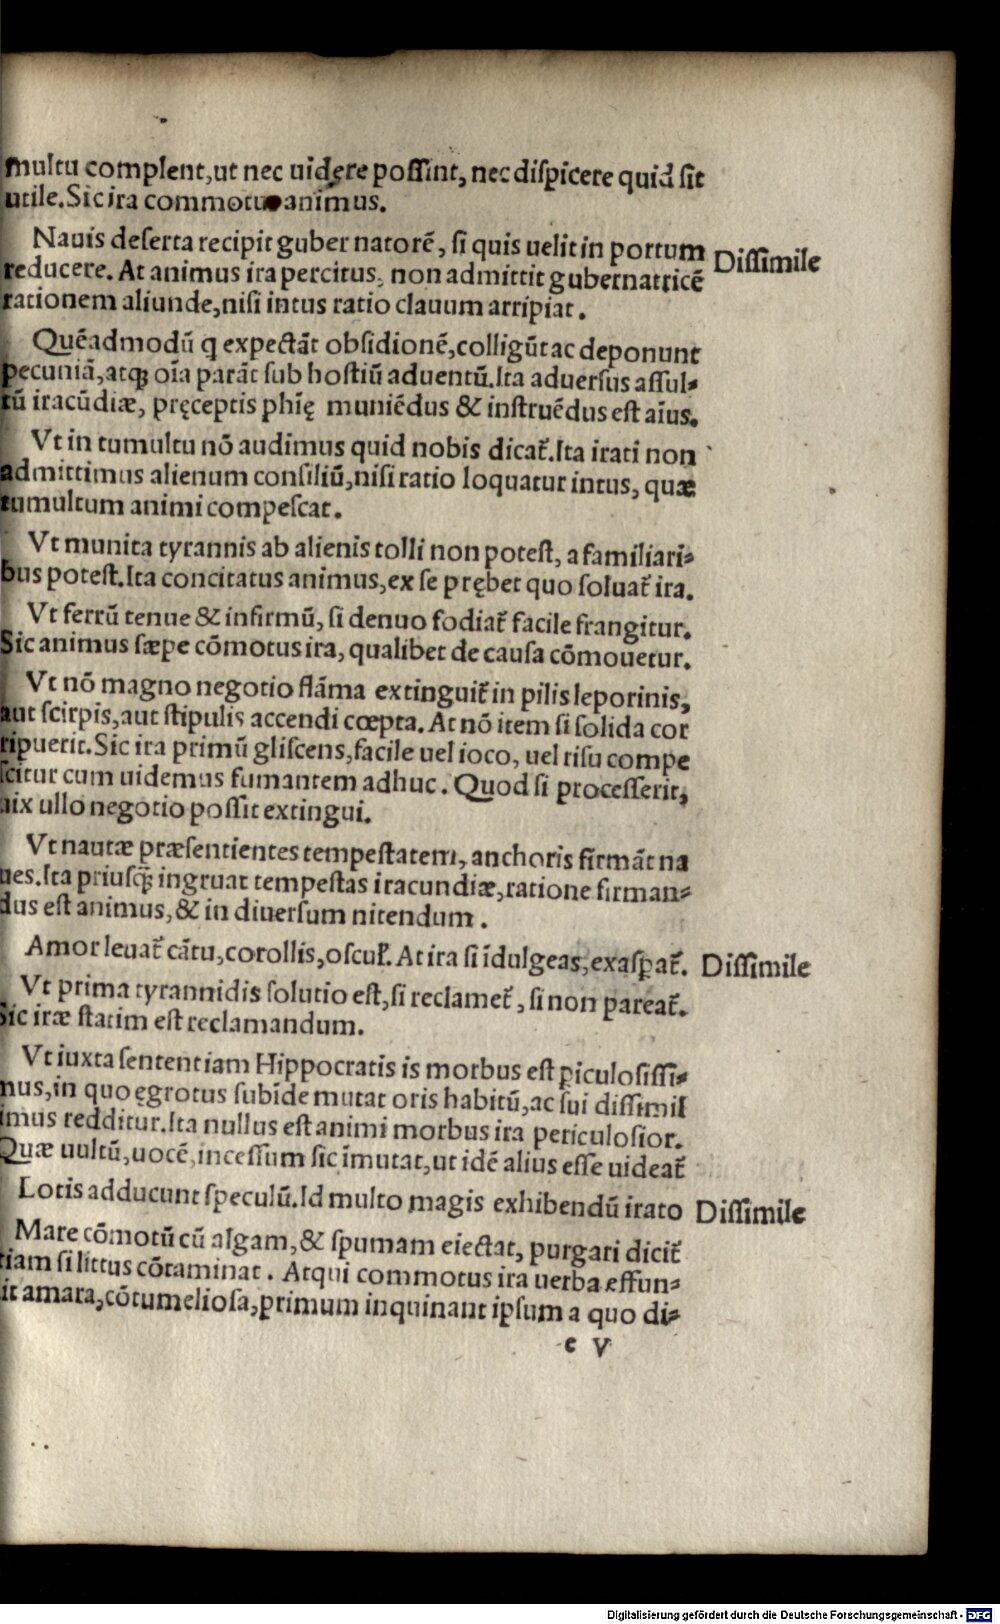 multu complent,ut nec uidere possint, nec dispicere quid sit
utile.Sic ira commotus animus.
Nauis deserta recipit gubernatorē, si quis uelit in portum
Dissimile
reducere. At animus ira percitus, non admittit gubernatricē
rationem aliunde,nisi intus ratio clauum arripiat.
Quēadmodū q expectāt obsidionē,colligūt ac deponunt
pecuniā,atqȝ oīa parāt sub hostiū aduentū.Ita aduersus assul⸗
tū iracūdiæ, pręceptis phīę muniēdus & instruēdus est aīus.
Vt in tumultu nō audimus quid nobis dicat᷑.Ita irati non
admittimus alienum consiliū,nisi ratio loquatur intus, quæ
tumultum animi compescat.
Vt munita tyrannis ab alienis tolli non potest, a familiari⸗
bus potest.Ita concitatus animus,ex se prębet quo soluat᷑ ira.
Vt ferrū tenue & infirmū, si denuo fodiat᷑ facile frangitur.
Sic animus sæpe cōmotus ira, qualibet de causa cōmouetur.
Vt nō magno negotio flāma extinguit᷑ in pilis leporinis,
aut scirpis,aut stipulis accendi cœpta. At nō item si solida cor
ripuerit.Sic ira primū gliscens,facile uel ioco, uel risu compe
scitur cum uidemus fumantem adhuc. Quod si processerit,
uix ullo negotio possit extingui.
Vt nautæ præsentientes tempestatem, anchoris firmāt na
ues.Ita priusq̄ȝ ingruat tempestas iracundiæ,ratione firman⸗
dus est animus,& in diuersum nitendum.
Amor leuat᷑ cātu,corollis,oscul᷑. At ira si īdulgeas,exasꝑat᷑.
Dissimile
Vt prima tyrannidis solutio est,si reclamet᷑, si non pareat᷑.
Sic iræ statim est reclamandum.
Vt iuxta sententiam Hippocratis is morbus est ꝑiculosissi⸗
mus,in quo ęgrotus subīde mutat oris habitū,ac sui dissimil
imus redditur.Ita nullus est animi morbus ira periculosior.
Quæ uultū,uocē,incessum sic īmutat,ut idē alius esse uideat᷑
Lotis adducunt speculū.Id multo magis exhibendū irato
Dissimile
Mare cōmotū cū algam,& spumam eiectat, purgari dicit᷑
tiam si littus cōtaminat. Atqui commotus ira uerba effun⸗
it amara,cōtumeliosa,primum inquinant ipsum a quo di⸗
e v
Digitalisierung gefördert durch die Deutsche Forschungsgemeinschaft - DFG